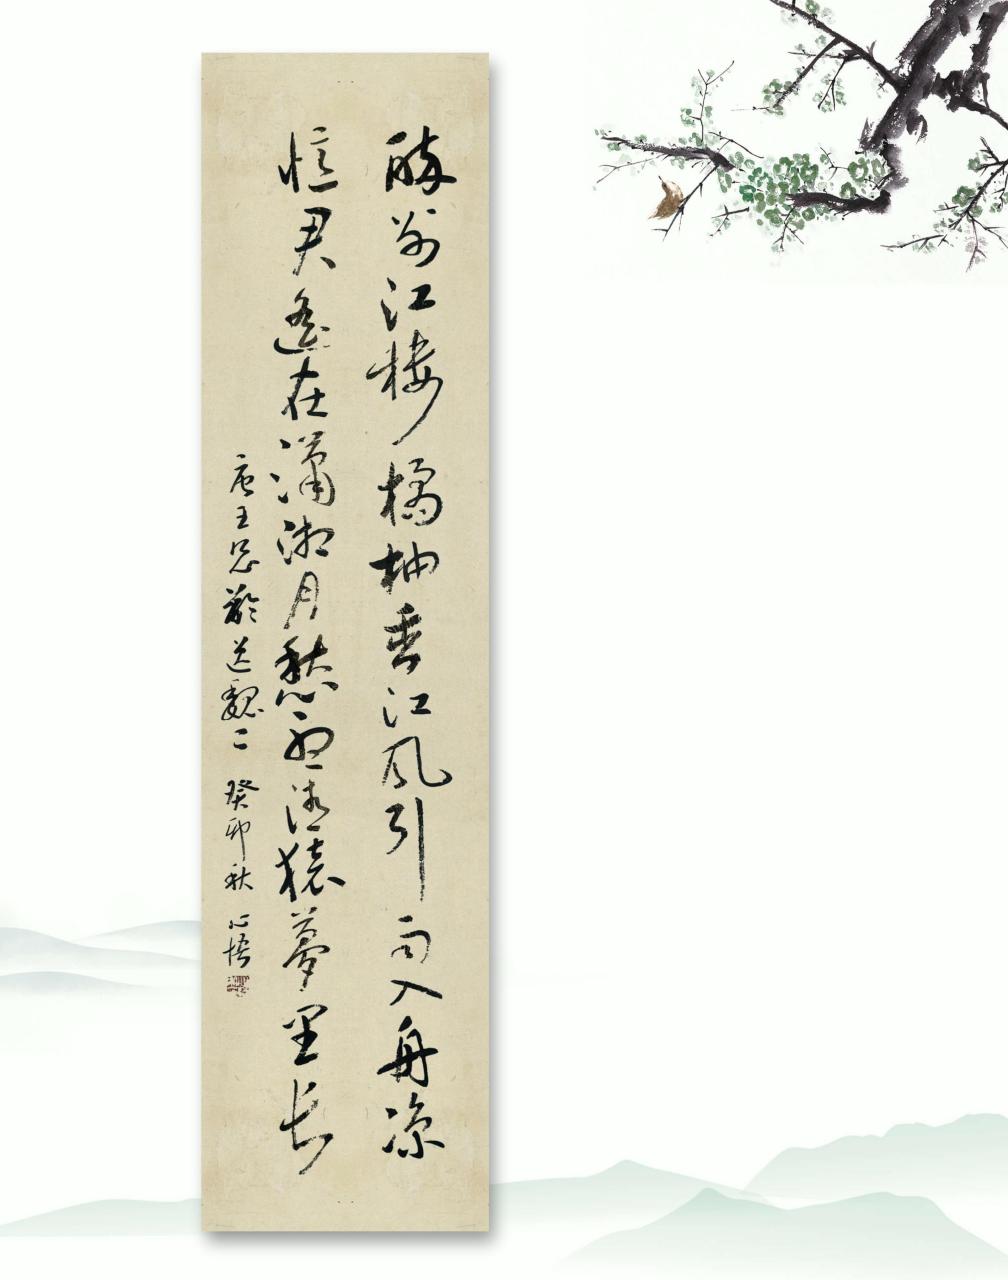 醉别江楼橘柚香江风引雨入舟凉
忆君遥在潇湘月愁听清猿梦里长
唐王昌龄送魏二 癸卯秋 心悟